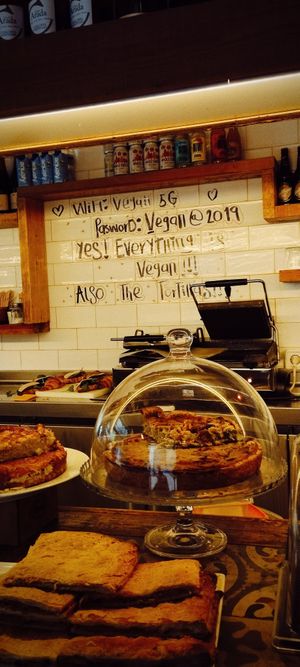 ♡ Wifi: Vegan 5G ♡
Pasword: Vegan@2019
Yes! Everything is
Vegan !!!
Also The Tortilla